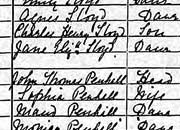 Agnes Lloyd Daur
Charles Henry Lloyd Son
Jane Elizth Lloyd Daur
John Thomas Penhell Head
Sophia Penhell Wife
Maud Penhell Daur
Monica Penhell Daur